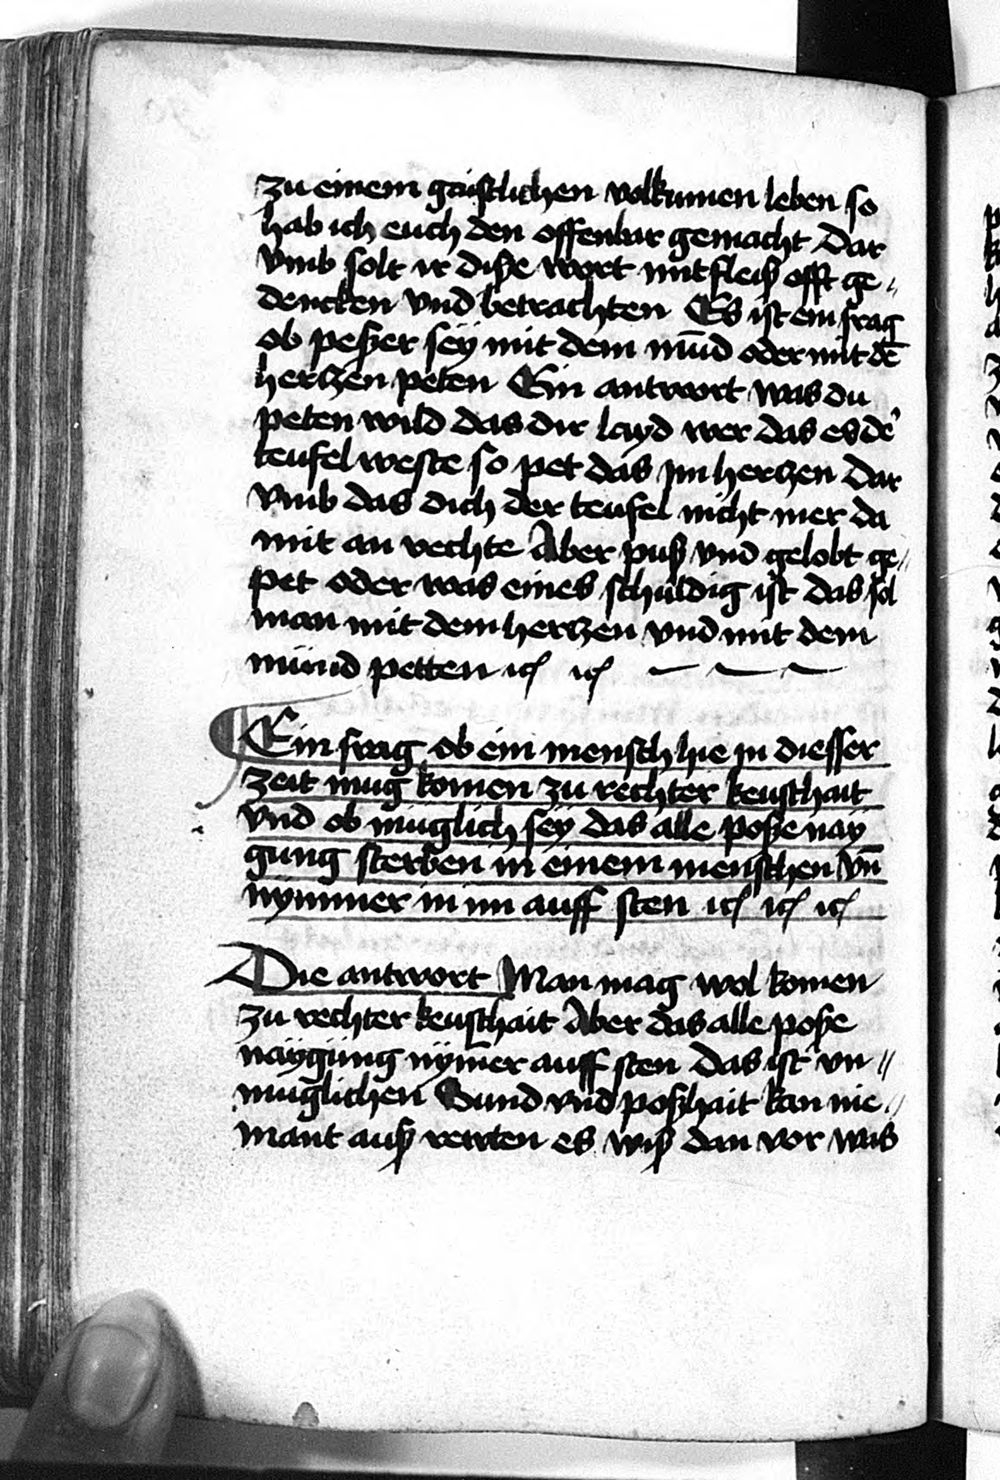 zu einem gaistlichen volkumen leben so
hab ich euch den offenbar gemacht Dar
vmb solt ir diße wort mit fleiß offt ge⸗
dencken vnd betrachten Es ist ein frag
ob peßer sey mit dem mūd oder mit dē
herczen peten Ein antwort was du
peten wild das dir layd wer das es dē
teufel weste so pet das jm herczen Dar
vmb das dich der teufel nicht mer da
mit an vechte Aber puß vnd gelobt ge⸗
pet oder was eines schuldig ist das sol
man mit dem herczen vnd mit dem
mund petten
Ein frag ob ein mensch hie jn diesser
zeit mug komen zu rechter keuschait
vnd ob muglich sey das alle poße nay
gung sterben in einem menschen vn̄
nymmer in im auff sten
Die antwort Man mag wol komen
zu rechter keuschait Aber das alle poße
naygung nymer auff sten das ist vn⸗
muglichen Sund vnd poßhait kan nie⸗
mant auß rewten es wiß dan vor was